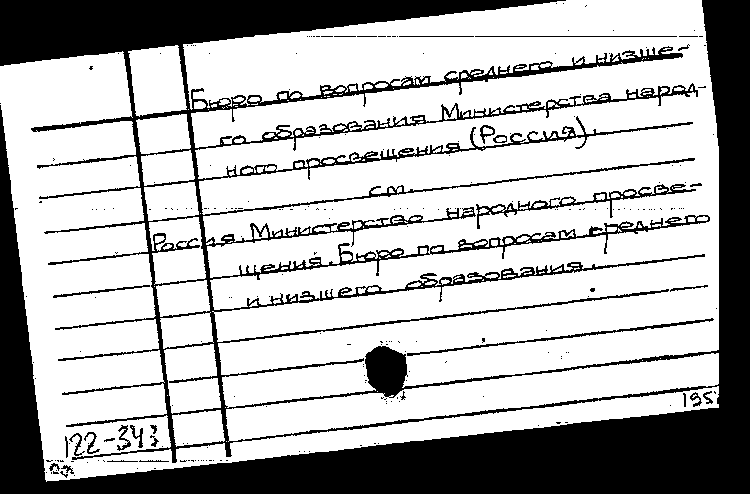 Бюро по вопросам среднего и низше-
го образования Министерства народ-
ного просвещения (Россия).
см.
Россия. Министерство народного просве-
щения. Бюро по вопросам среднего
и низшего образования.
122-343